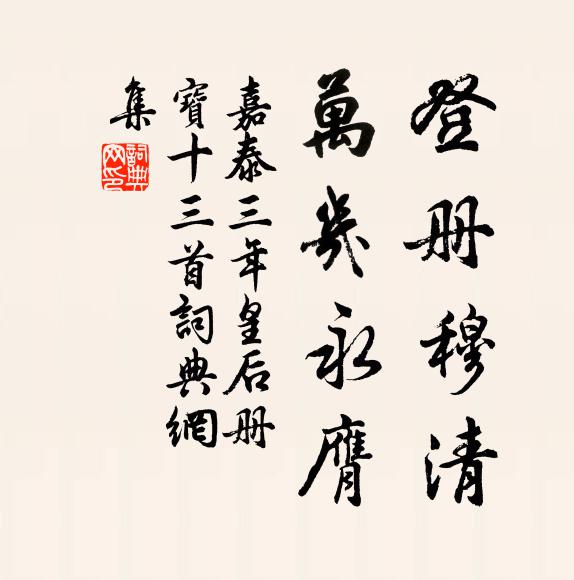 登册穆清
萬幾永膺
嘉泰三年皇后册
寶十三首詞典網
集
詞典
网印